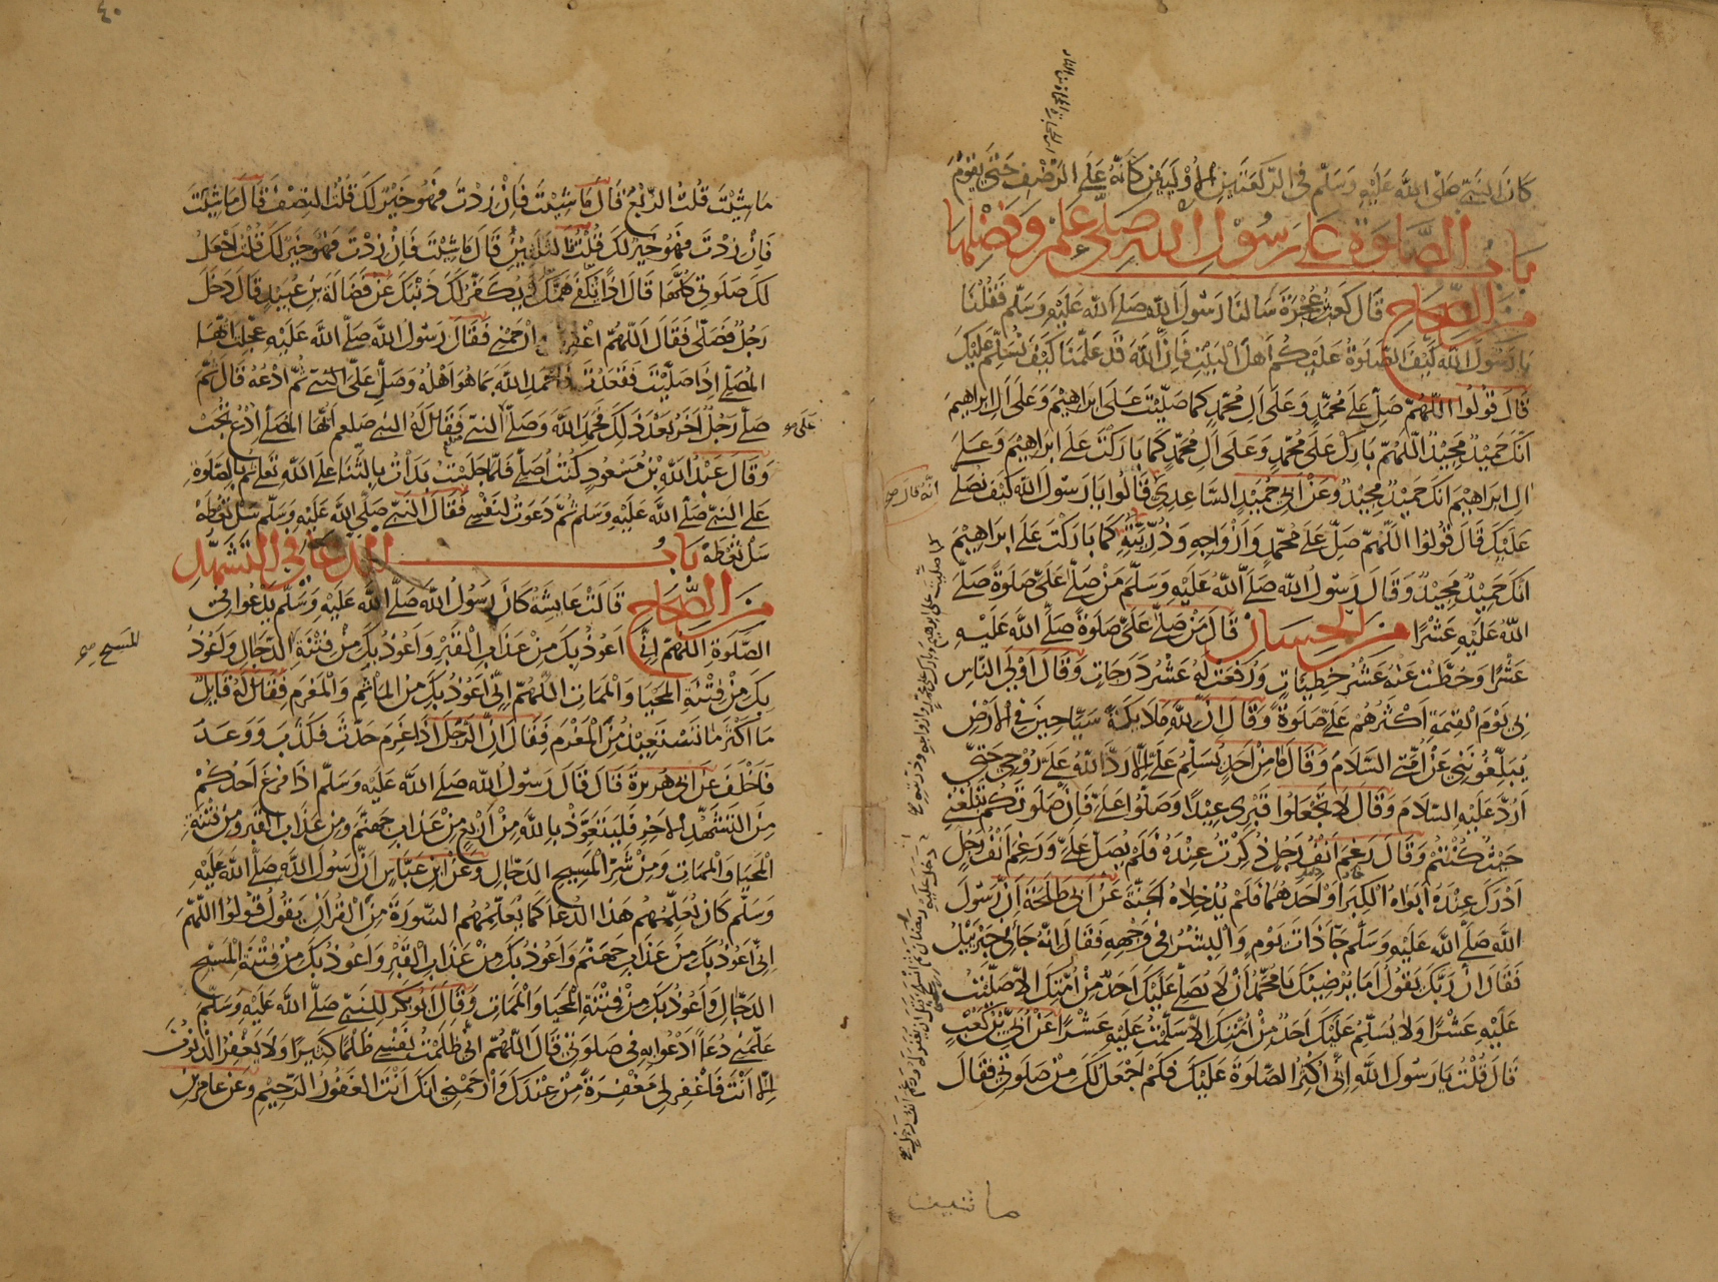 كان النبي صلى الله عليه وسلم في الركعتين الأوليين كأنه على الرضف حتى يقوم
باب الصلوة على رسول الله صلى علم وفضلها
من الصحاح قال كعب عجرة سالنا رسول الله صلى الله عليه وسلم فقلنا
يا رسول الله كيف الصلوة عليكم اهل البيت فان الله قد علمنا كيف نسلم عليك
قال قولوا اللهم صل على محمد وعلى ال محمد كما صليت على ابراهيم وعلى ال ابراهيم
انك حميد مجيد اللهم بارك على محمد وعلى ال محمد كما باركت على ابراهيم وعلى
ال ابراهيم انك حميد مجيد وعن ابي حميد الساعدي قالوا يا رسول الله كيف نصلي
عليك قال قولوا اللهم صل على محمد وازواجه وذريته كما باركت على ابراهيم
انك حميد مجيد وقال رسول الله صلى الله عليه وسلم من صلى علي صلوة صلى
الله عليه عشرا من الحسان قال من صلى علي صلوة صلى الله عليه
عشرا وحطت عنه عشر خطيئات ورفعت له عشر درجات وقال اولى الناس
بي يوم القيمة اكثرهم علي صلوة وقال ان لله ملايكة سياحين في الارض
يبلغونني عن امتي السلام وقال ما من احد يسلم علي الا رد الله علي روحي حتى
ارد عليه السلام وقال لا تجعلوا قبري عيدا وصلوا علي فان صلوتكم تبلغني
حيث كنتم وقال رغم انف رجل ذكرت عنده فلم يصل علي ورغم انف رجل
ادرك عنده ابواه الكبر او احدهما فلم يدخلاه الجنة عن ابي طلحة ان رسول
الله صلى الله عليه وسلم جا ذات يوم والبشر في وجهه فقال انه جاني جبرئيل
فقال ان ربك يقول اما يرضيك يا محمد ان لا يصلي عليك احد من امتك الا صليت
عليه عشرا ولا يسلم عليك احد من امتك الا سلمت عليه عشرا عن ابي بن كعب
قال قلت يا رسول الله اني اكثر الصلوة عليك فكم اجعل لك من صلوتي فقال
ما شيت
ما شيت قلت الربع قال ما شيت فان زدت فهو خير لك قلت النصف قال ما شيت
فان زدت فهو خير لك قلت فالثلثين قال ما شيت فان زدت فهو خير لك قلت اجعل
لك صلوتي كلها قال اذا يكفى همك ويكفر لك ذنبك عن فضالة بن عبيد قال دخل
رجل فصلى فقال اللهم اغفر لي وارحمني فقال رسول الله صلى الله عليه عجلت ايها
المصلي اذا صليت فقعدت فاحمد الله بما هو اهله وصل علي ثم ادعه قال ثم
صلى رجل اخر بعد ذلك فحمد الله وصلى النبي فقال له النبي صلعم ايها المصلي ادع تجب
على
وقال عبد الله بن مسعود كنت اصلي فلما جلست بدأت بالثنا على الله تعالى ثم بالصلوة
على النبي صلى الله عليه وسلم ثم دعوت لنفسي فقال النبي صلى الله عليه وسلم سل تعطه
سل تعطه باب الدعا في التشهد
من الصحاح قالت عايشة كان رسول الله صلى الله عليه وسلم يدعوا في
الصلوة اللهم اني اعوذ بك من عذاب القبر واعوذ بك من فتنة الدجال واعوذ
المسيح
بك من فتنة المحيا والممات اللهم اني اعوذ بك من الماثم والمغرم فقال له قايل
ما اكثر ما تستعيذ من المغرم فقال ان الرجل اذا غرم حدث فكذب ووعد
فاخلف عن ابي هريرة قال قال رسول الله صلى الله عليه وسلم اذا فرغ احدكم
من التشهد الاخر فليتعوذ بالله من اربع من عذاب جهنم ومن عذاب القبر ومن فتنة
المحيا والممات ومن شر المسيح الدجال وعن ابن عباس ان رسول الله صلى الله عليه
وسلم كان يعلمهم هذا الدعا كما يعلمهم السورة من القران يقول قولوا اللهم
اني اعوذ بك من عذاب جهنم واعوذ بك من عذاب القبر واعوذ بك من فتنة المسيح
الدجال واعوذ بك من فتنة المحيا والممات وقال ابو بكر للنبي صلى الله عليه وسلم
علمني دعا ادعوا به في صلوتي قال اللهم اني ظلمت نفسي ظلما كثيرا ولا يغفر الذنوب
الا انت فاغفر لي مغفرة من عندك وارحمني انك انت الغفور الرحيم وعن عامر بن